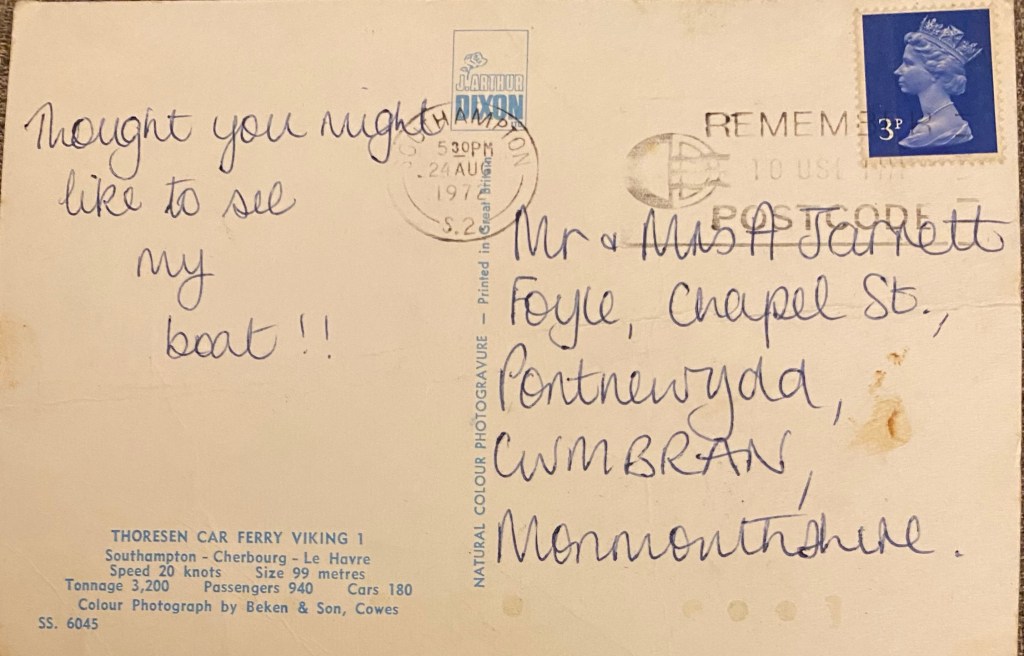 J. ARTHUR
DIXON
Thought you might
like to see
my
boat !!
SOUTHAMPTON
5 30PM
24 AUG
197
S.2
REMEMBER
TO USE THE
POSTCODE
3P
Mr & Mrs A Jarrett
Foyle, Chapel St.,
Pontnewydd,
CWMBRAN,
Monmouthshire.
NATURAL COLOUR PHOTOGRAVURE — Printed in Great Britain
THORESEN CAR FERRY VIKING 1
Southampton - Cherbourg - Le Havre
Speed 20 knots Size 99 metres
Tonnage 3,200 Passengers 940 Cars 180
Colour Photograph by Beken & Son, Cowes
SS. 6045